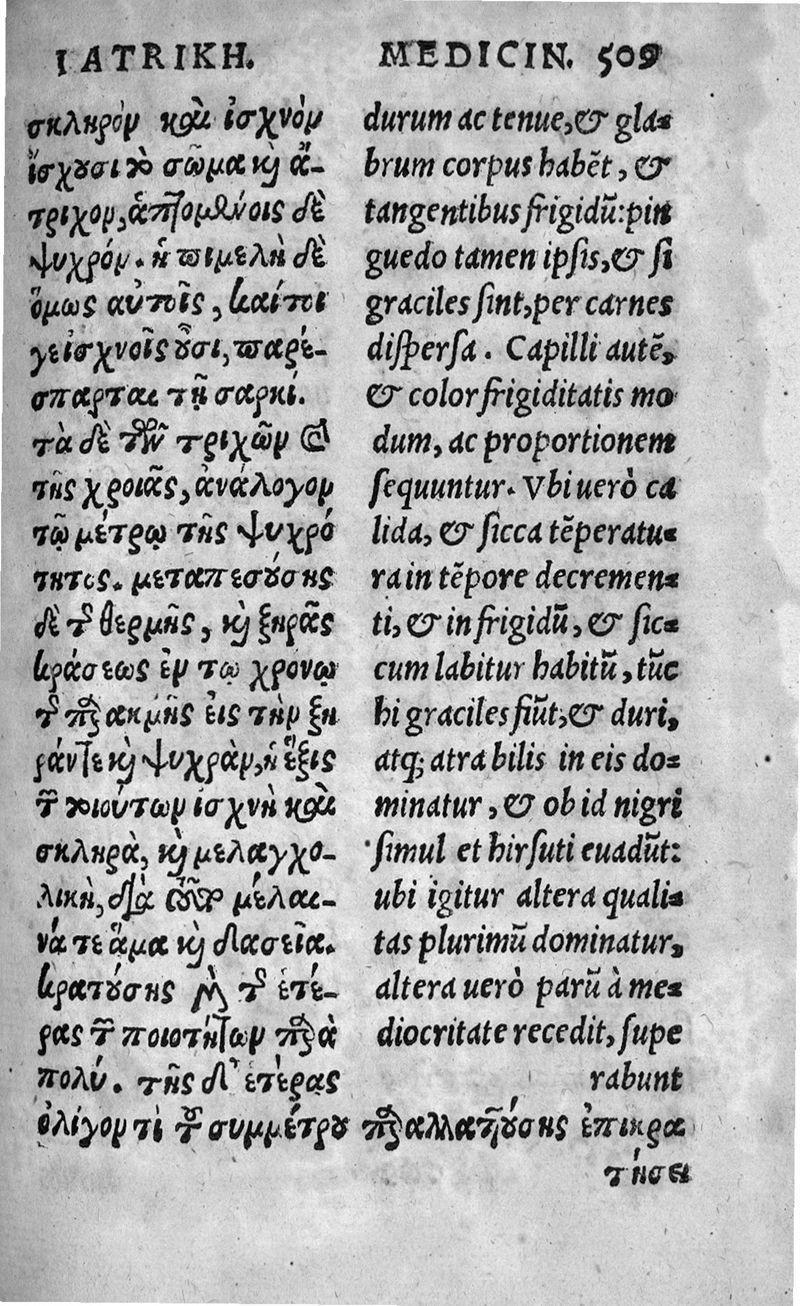 ΙΑΤΡΙΚΗ. MEDICIN. 509
σκληρὸν καὶ ἰσχνὸν
ἴσχουσι τὸ σῶμα καὶ ἄ-
τριχον, ἁπτομένοις δὲ
ψυχρόν. ἡ πιμελὴ δὲ
ὅμως αὐτοῖς, καίτοι
γε ἰσχνοῖς οὖσι, παρέ-
σπαρται τῇ σαρκί.
τὰ δὲ τῶν τριχῶν καὶ
τῆς χροιᾶς, ἀνάλογον
τῷ μέτρῳ τῆς ψυχρό
τητος. μεταπεσούσης
δὲ τῆς θερμῆς, καὶ ξηρᾶς
κράσεως ἐν τῷ χρόνῳ
τῆς παρακμῆς εἰς τὴν ξη
ράν τε καὶ ψυχρὰν, ἡ ἕξις
τῶν τοιούτων ἰσχνὴ καὶ
σκληρὰ, καὶ μελαγχο-
λικὴ, διὰ τοῦτο μέλαι-
νά τε ἅμα καὶ δασεῖα.
κρατούσης μὲν τῆς ἑτέ-
ρας τῶν ποιοτήτων παρὰ
πολύ. τῆς δ' ἑτέρας
ὀλίγον τι τοῦ συμμέτρου παραλλαττούσης ἐπικρα
τήσει
durum ac tenue, & gla-
brum corpus habēt, &
tangentibus frigidū: pin
guedo tamen ipsis, & si
graciles sint, per carnes
dispersa. Capilli autē,
& color frigiditatis mo
dum, ac proportionem
sequuntur. Vbi uerò ca
lida, & sicca tēperatu-
ra in tēpore decremen-
ti, & in frigidū, & sic-
cum labitur habitū, tūc
hi graciles fiūt, & duri,
atq; atra bilis in eis do-
minatur, & ob id nigri
simul et hirsuti euadūt:
ubi igitur altera quali-
tas plurimū dominatur,
altera uerò parū à me-
diocritate recedit, supe
rabunt